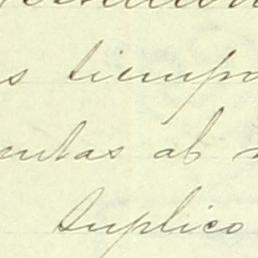 s tiempo
entas al
Suplico